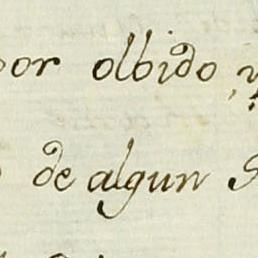 por olbido,
de algun